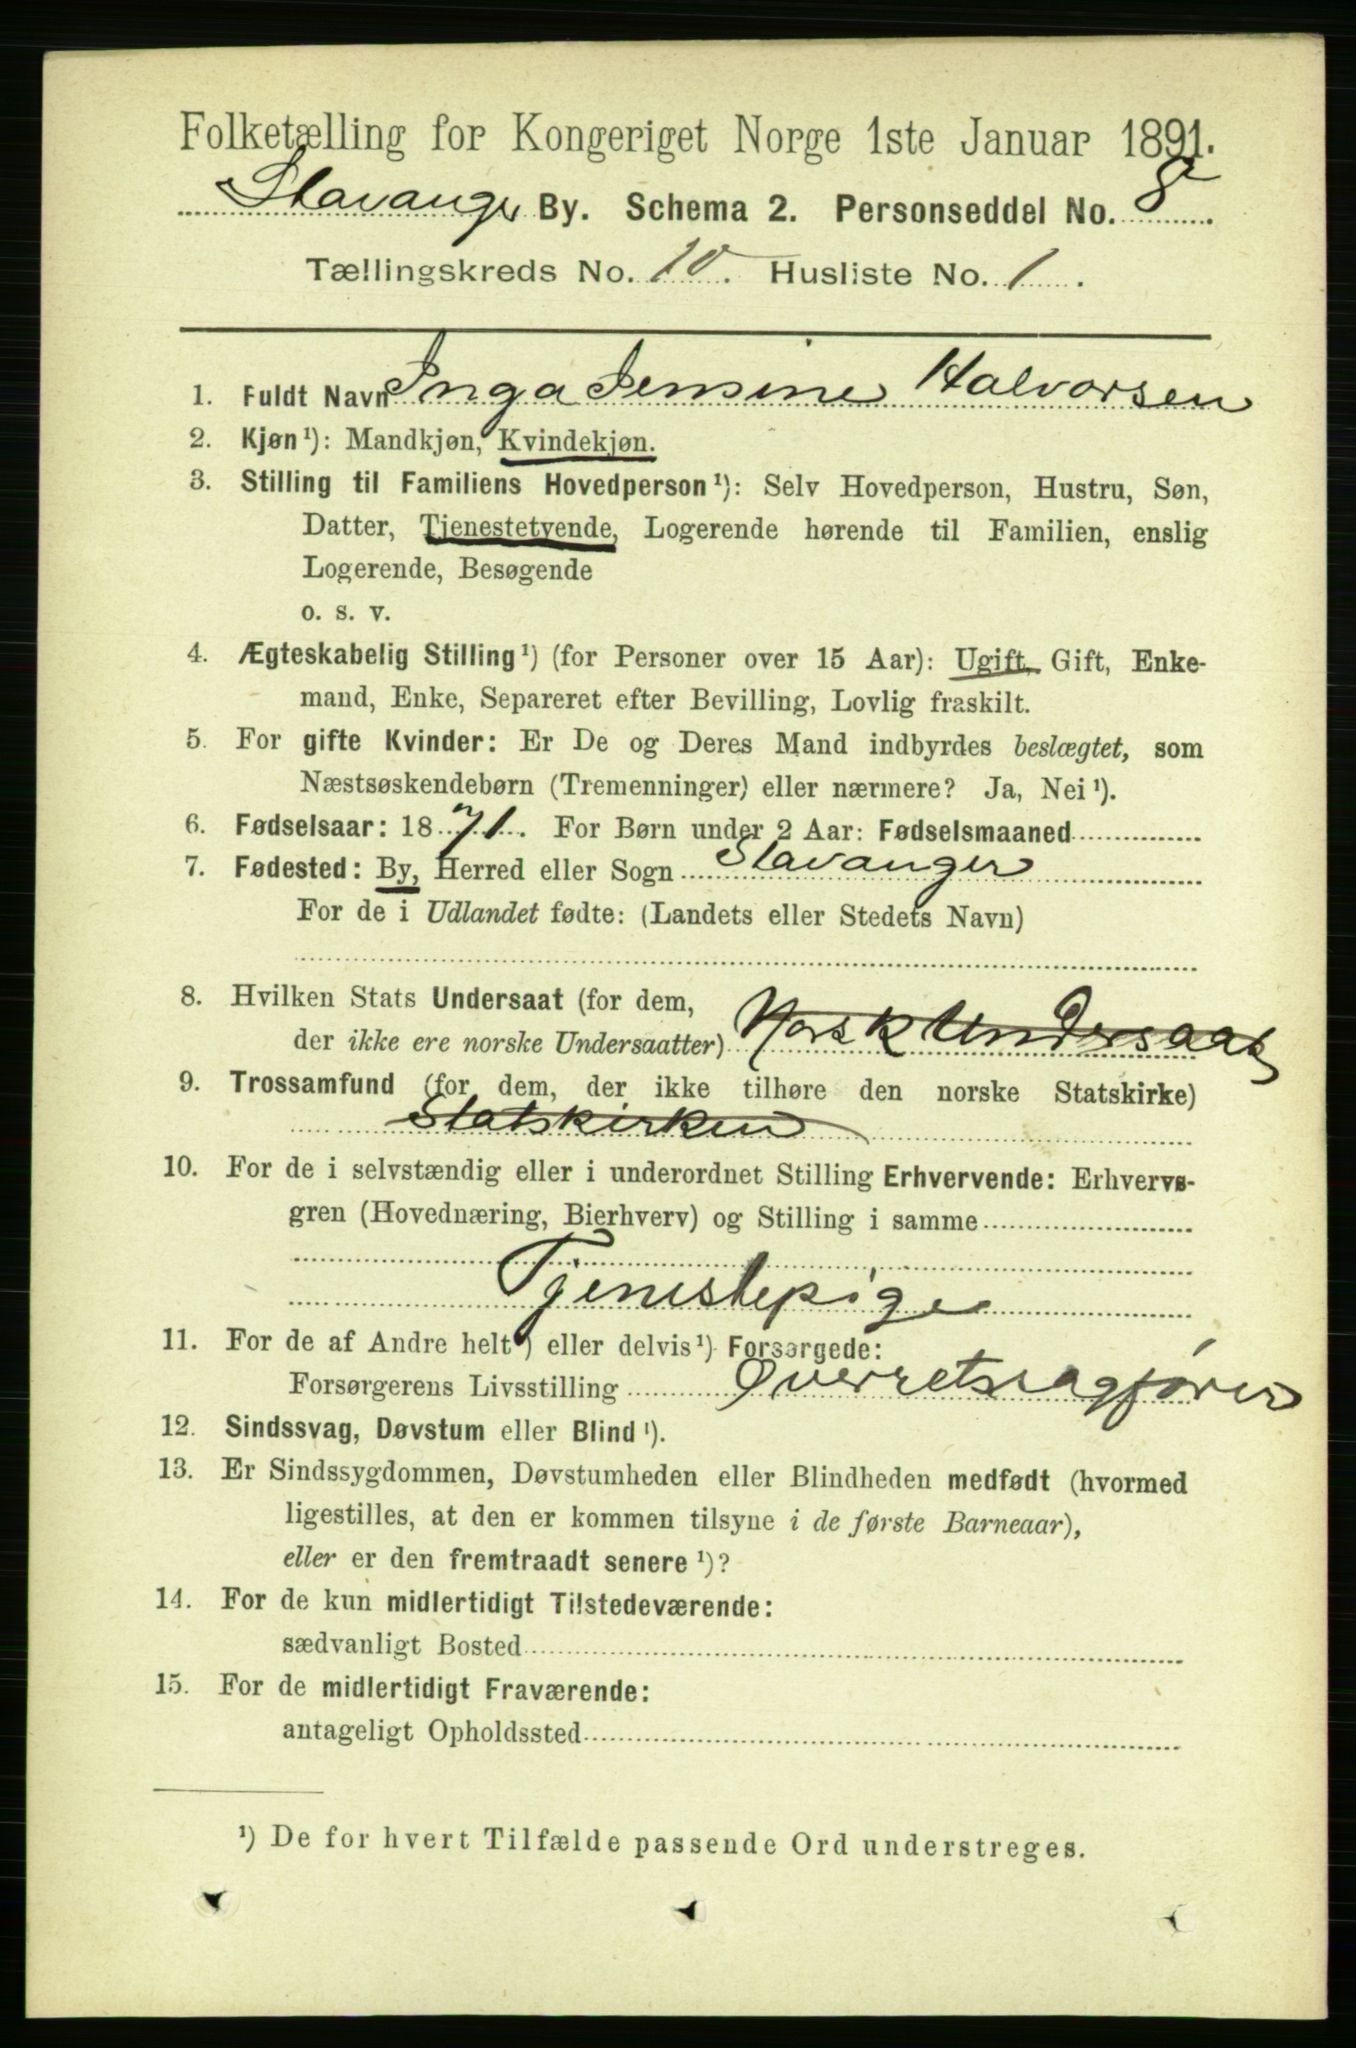 Folketælling for Kongeriget Norge 1ste Januar 1891.
Stavanger By. Schema 2. Personseddel No. 8
Tællingskreds No. 10. Husliste No. 1.
1. Fuldt Navn Inga Jensine Halvorsen
2. Kjøn¹): Mandkjøn, Kvindekjøn.
3. Stilling til Familiens Hovedperson¹): Selv Hovedperson, Hustru, Søn,
Datter, Tjenestetyende, Logerende hørende til Familien, enslig
Logerende, Besøgende
o. s. v.
4. Ægteskabelig Stilling¹) (for Personer over 15 Aar): Ugift, Gift, Enke-
mand, Enke, Separeret efter Bevilling, Lovlig fraskilt.
5. For gifte Kvinder: Er De og Deres Mand indbyrdes beslægtet, som
Næstsøskendebørn (Tremenninger) eller nærmere? Ja, Nei¹).
6. Fødselsaar: 1871. For Børn under 2 Aar: Fødselsmaaned
7. Fødested: By, Herred eller Sogn Stavanger
For de i Udlandet fødte: (Landets eller Stedets Navn)
8. Hvilken Stats Undersaat (for dem,
der ikke ere norske Undersaatter) Norsk Undersaat
9. Trossamfund (for dem, der ikke tilhøre den norske Statskirke)
Statskirken
10. For de i selvstændig eller i underordnet Stilling Erhvervende: Erhvervs-
gren (Hovednæring, Bierhverv) og Stilling i samme
Tjenestepige
11. For de af Andre helt¹) eller delvis¹) Forsørgede:
Forsørgerens Livsstilling Overretssagfører
12. Sindssvag, Døvstum eller Blind¹).
13. Er Sindssygdommen, Døvstumheden eller Blindheden medfødt (hvormed
ligestilles, at den er kommen tilsyne i de første Barneaar),
eller er den fremtraadt senere¹)?
14. For de kun midlertidigt Tilstedeværende:
sædvanligt Bosted
15. For de midlertidigt Fraværende:
antageligt Opholdssted
¹) De for hvert Tilfælde passende Ord understreges.